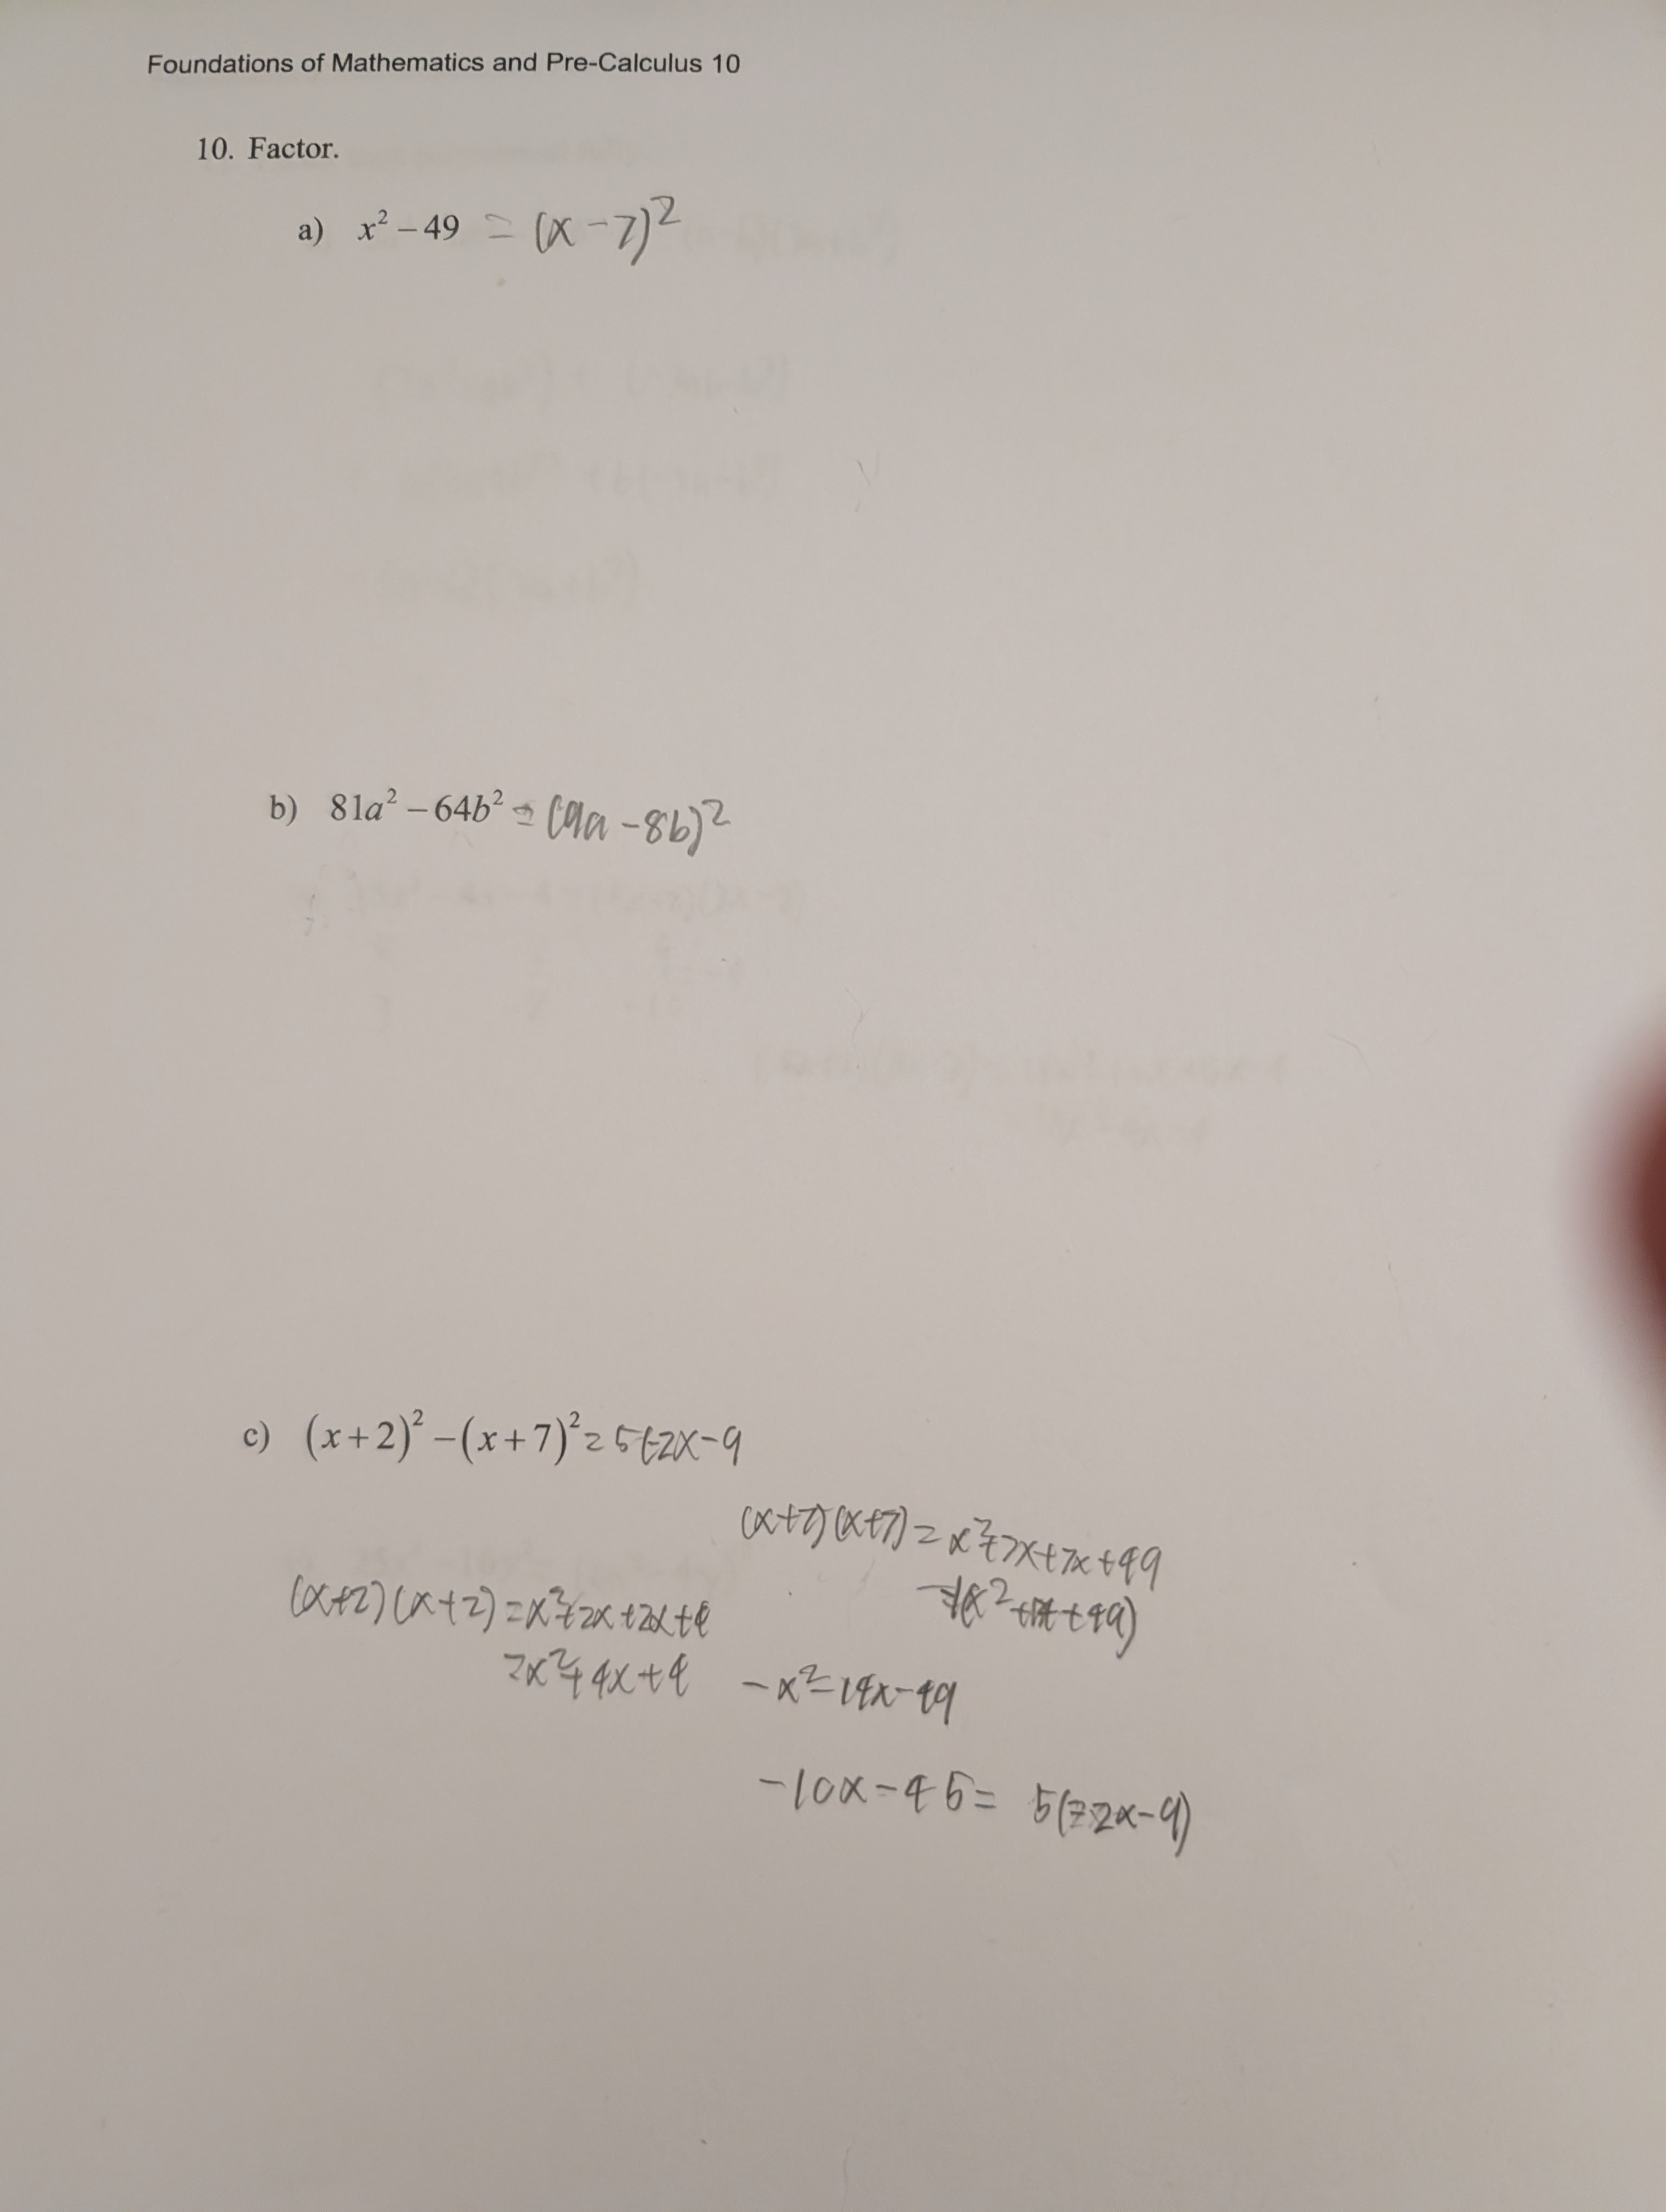 Foundations of Mathematics and Pre-Calculus 10
10. Factor.
a) x² – 49 = (x – 7)²
b) 81a² – 64b² = (9a – 8b)²
c) (x + 2)² – (x + 7)² = 5(-2x – 9
(x+7)(x+7) = x²+7x+7x+49
-1(x²+14x+49)
(x+2)(x+2) = x²+2x+2x+4
= x²+4x+4
-x²-14x-49
-10x-45 = 5(-2x-9)